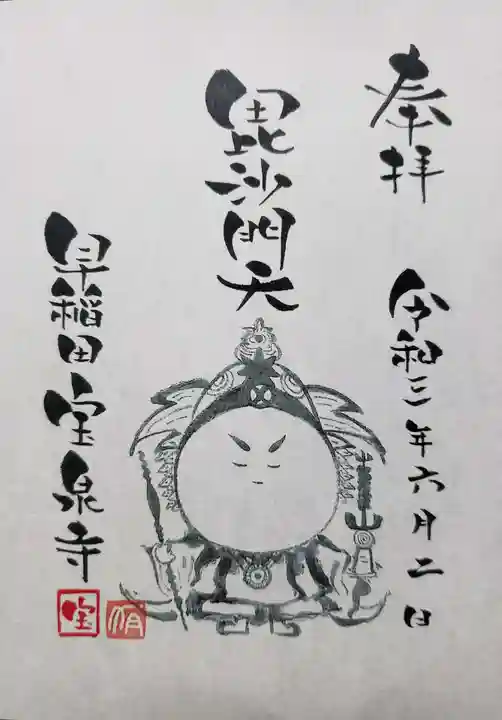 奉拝
令和三年六月二日
毘沙門天
早稲田宝泉寺
宝